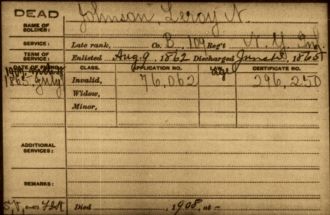 DEAD
NAME OF SOLDIER: Johnson Leroy N.
SERVICE: Late rank, Co. B, 109 Reg't N.Y. Inf.
TERM OF SERVICE: Enlisted Aug. 9, 1862 Discharged June 4, 1865
DATE OF FILING. CLASS. APPLICATION NO. LAW CERTIFICATE NO.
1865 July Invalid, 76,062 296,250
Widow,
Minor,
ADDITIONAL SERVICES:
REMARKS:
Died 1908, at